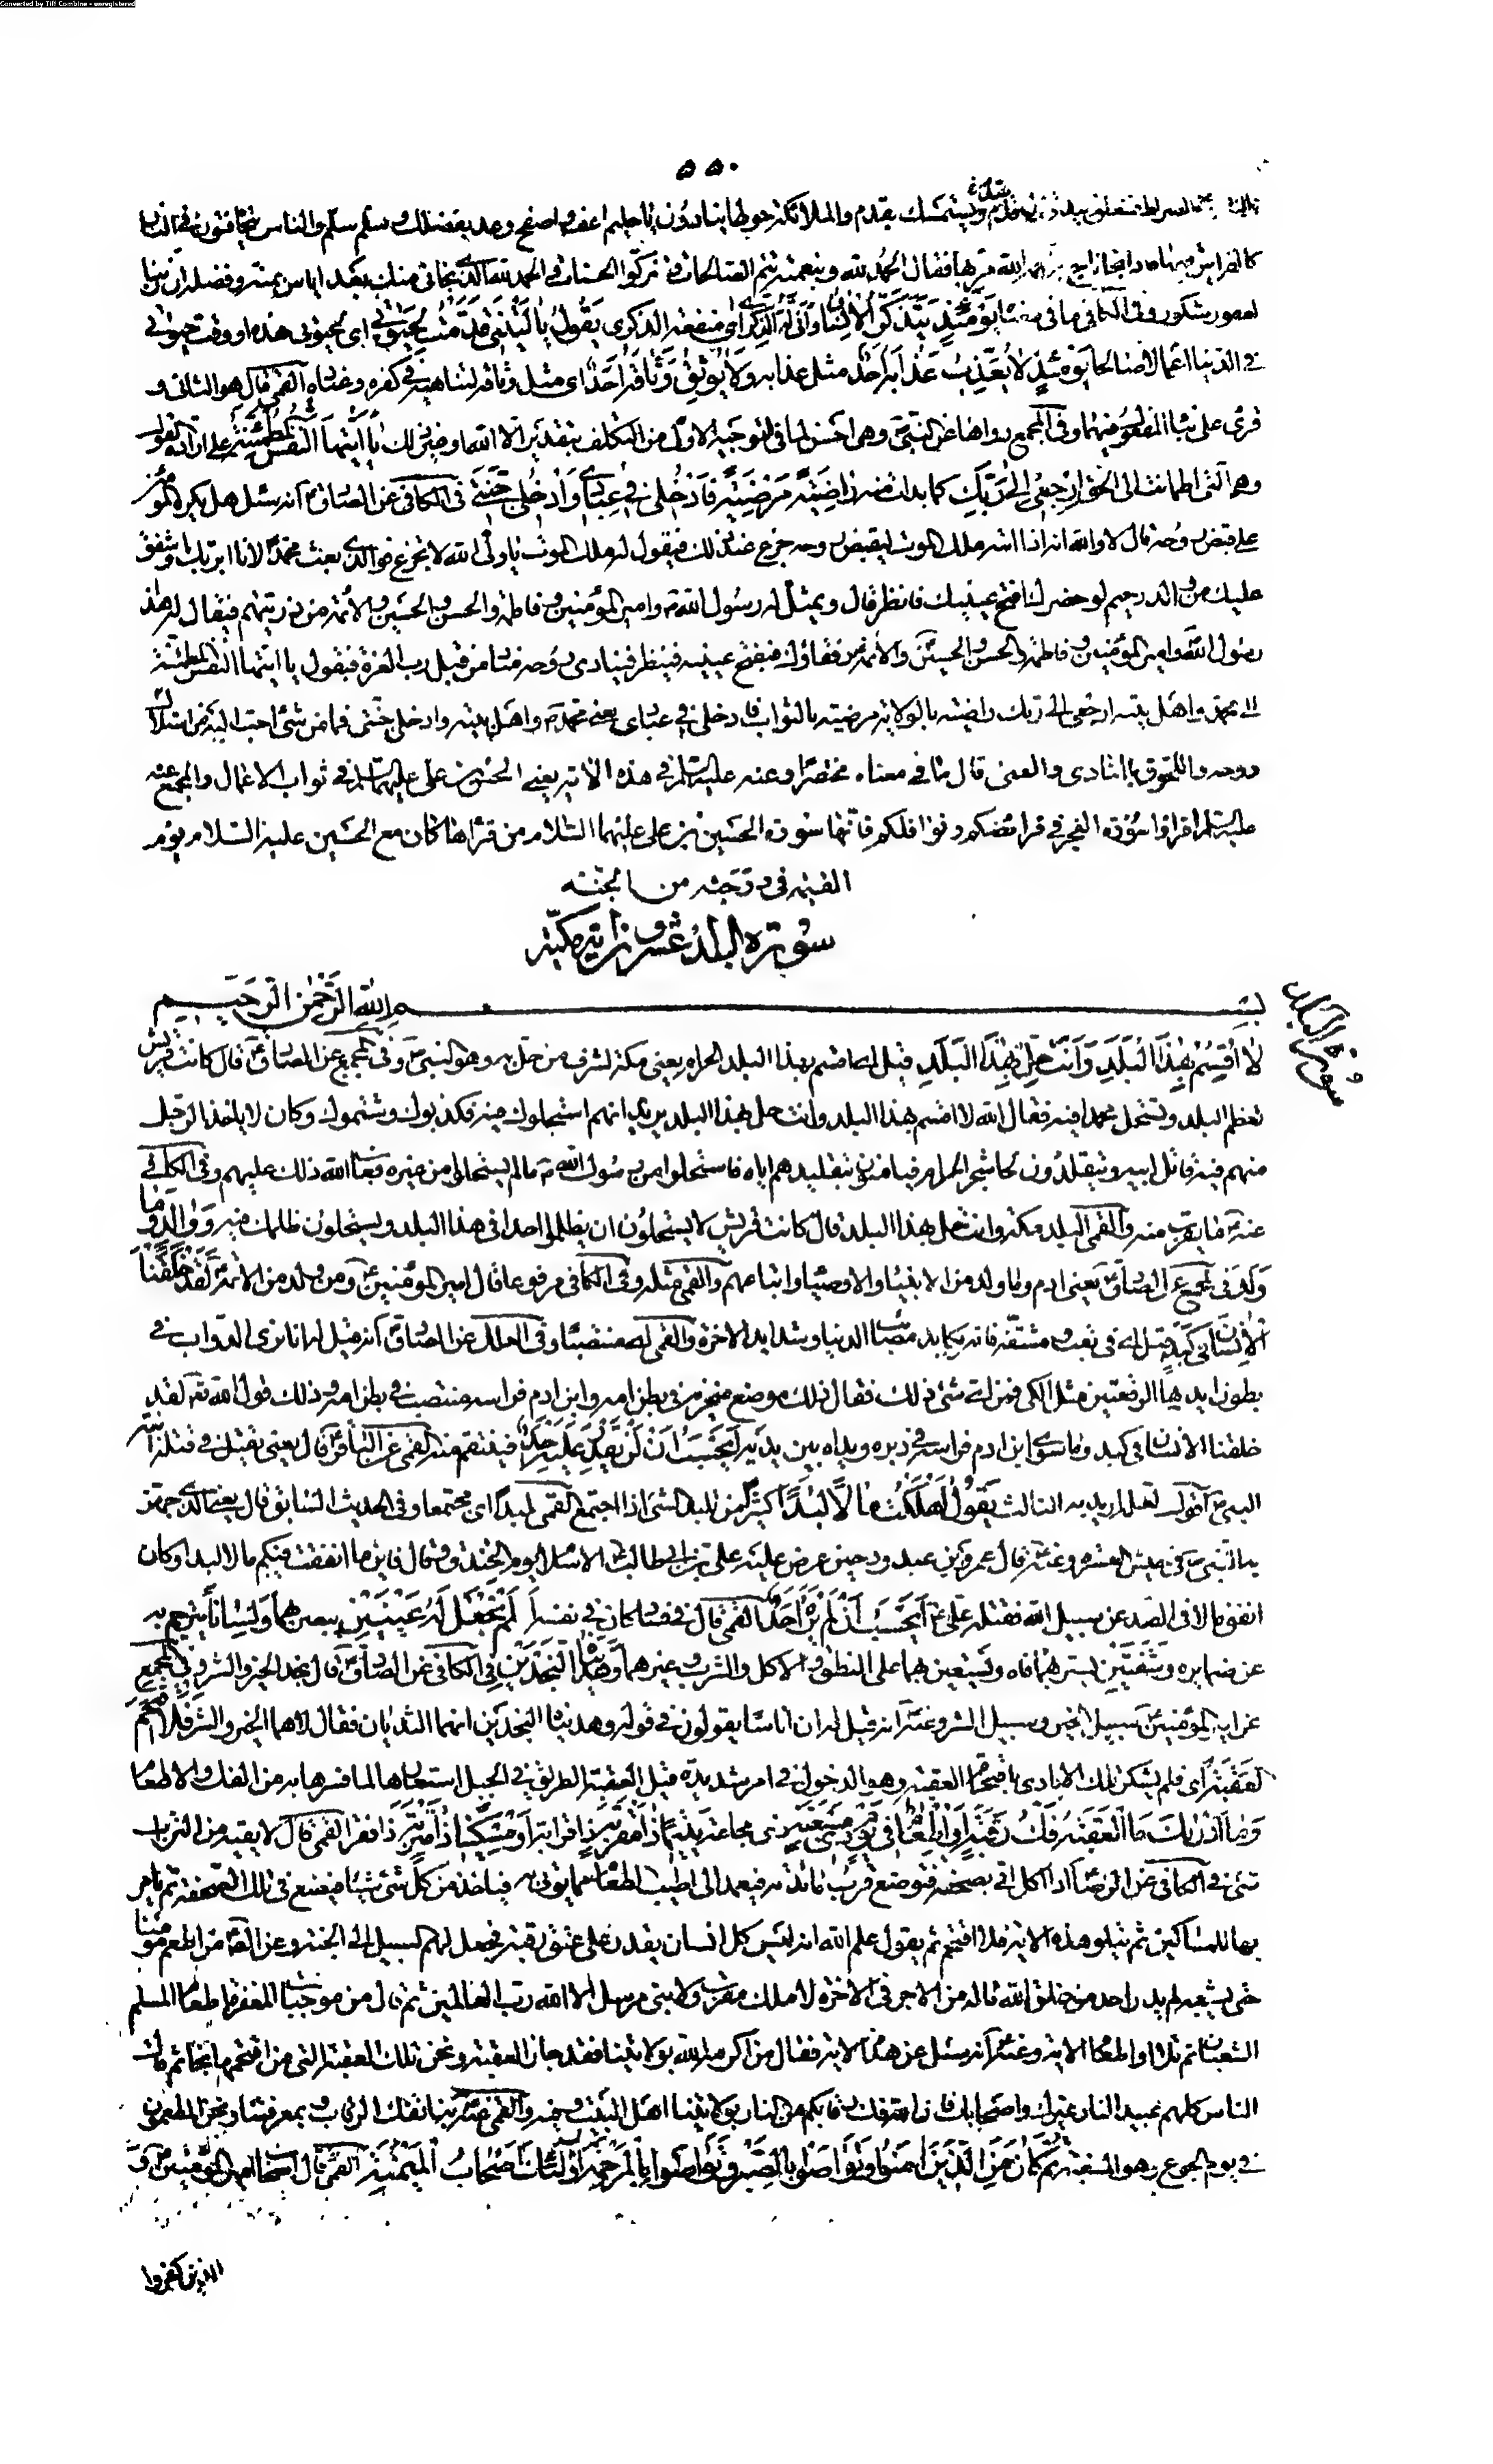 Converted by Tiff Combine - unregistered
۵۵۰
على الصراط فمتعلق بيد وتزل قدم ويستمسك بقدم والملائكة حولها ينادون يا حليم اعف واصفح وعد بفضلك وسلم سلم والناس يتهافتون في النار
كالفراش فيها فاذا نجا ناج برحمة الله مر بها فقال الحمد لله وبنعمته تتم الصالحات وتزكوا الحسنات والحمد لله الذي نجاني منك بعد اياس بمنه وفضله ان ربنا
لغفور شكور وفي الكافي ما في معناه يومئذ يتذكر الانسان وانى له الذكرى اي منفعة الذكرى يقول يا ليتني قدمت لحيوتي اي لحيوتي هذه او وقت حيوتي
في الدنيا اعمالا صالحة فيومئذ لا يعذب عذابه احد مثل عذابه ولا يوثق وثاقه احد اي مثل وثاقه لتناهيه في كفره وعناده القمي قال هو الثاني و
قرئ على بناء المفعول فيهما وفي المجمع رواها عن النبي ص وهي احسن لما في التوجيه الاول من التكلف بتقدير الا الله او غير ذلك يا ايتها النفس المطمئنة على ارادة القول
وهي التي اطمانت الى الحق ارجعي الى ربك كما بدات منه راضية مرضية فادخلي في عبادي وادخلي جنتي في الكافي عن الصادق ع انه سئل هل يكره المؤمن
على قبض روحه قال لا والله انه اذا اتاه ملك الموت ليقبض روحه جزع عند ذلك فيقول له ملك الموت يا ولي الله لا تجزع فوالذي بعث محمدا لانا ابر بك واشفق
عليك من والد رحيم لو حضرك افتح عينيك فانظر قال ويمثل له رسول الله ص وامير المؤمنين وفاطمة والحسن والحسين والائمة من ذريتهم فيقال له هذا
رسول الله وامير المؤمنين وفاطمة والحسن والحسين والائمة رفقاؤك فيفتح عينيه فينظر فينادي روحه مناد من قبل رب العزة فيقول يا ايتها النفس المطمئنة
الى محمد واهل بيته ارجعي الى ربك راضية بالولاية مرضية بالثواب فادخلي في عبادي يعني محمدا ص واهل بيته وادخلي جنتي فما من شئ احب اليه من استلال
روحه واللحوق بالمنادي والقمي قال ما في معناه مختصرا وعنه عليه السلم في هذه الاية يعني الحسين بن علي عليهما السلم في ثواب الاعمال والمجمع عنه
عليه السلم اقراوا سورة الفجر في فرائضكم ونوافلكم فانها سورة الحسين بن علي عليهما السلام من قراها كان مع الحسين عليه السلام يوم
القيمة في درجته من الجنة
سورة البلد عشرون اية مكية
بسم الله الرحمن الرحيم
سورة البلد
لا اقسم بهذا البلد وانت حل بهذا البلد قيل اي اقسم بهذا البلد الحرام يعني مكة لشرف من حل به وهو النبي ص وفي المجمع عن الصادق ع قال كانت قريش
تعظم البلد وتستحل محمدا فيه فقال الله لا اقسم بهذا البلد وانت حل بهذا البلد يريد انهم استحلوك فيه فكذبوك وشتموك وكان لا ياخذ الرجل
منهم فيه قاتل ابيه ويتقلدون لحاء شجر الحرم فيامنون بتقليدهم اياه فاستحلوا من رسول الله ص ما لم يستحلوا من غيره فعاب الله ذلك عليهم وفي الكافي
عنه ع ما يقرب منه والقمي البلد مكة وانت حل بهذا البلد قال كانت قريش لا يستحلون ان يظلموا احدا في هذا البلد ويستحلون ظلمك فيه ووالد وما
ولد في المجمع عن الصادق ع يعني ادم وما ولد من الانبياء والاوصياء واتباعهم والقمي مثله وفي الكافي مرفوعا قال امير المؤمنين ع ومن ولد من الائمة ع لقد خلقنا
الانسان في كبد قيل اي في تعب ومشقة فانه يكابد مصائب الدنيا وشدايد الاخرة والقمي اي منتصبا وفي العلل عن الصادق ع انه قيل له انا نرى الدواب في
بطون ايديها الرقعتين مثل الكي فمن اي شئ ذلك فقال ذلك موضع منخريه في بطن امه وابن ادم فراسه منتصب في بطن امه وذلك قول الله تع لقد
خلقنا الانسان في كبد وما سوى ابن ادم فراسه في دبره ويداه بين يديه ايحسب ان لن يقدر عليه احد فينتقم منه القمي عن الباقر ع قال يعني يقتل في قتله ابنة
النبي ص اقول لعله اريد به الثالث يقول اهلكت مالا لبدا كثيرا من تلبد الشئ اذا اجتمع القمي لبدا اي مجتمعا وفي الحديث السابق قال يعني الذي جهز
به النبي ص في جيش العسرة وعنه ع قال عمرو بن عبد ود حين عرض عليه علي بن ابي طالب ع الاسلام يوم الخندق وقال فاين ما انفقت فيكم مالا لبدا وكان
انفق مالا في الصد عن سبيل الله فقتله علي ع ايحسب ان لم يره احد القمي قال في فساد كان في نفسه الم نجعل له عينين يبصر بهما ولسانا يترجم به
عن ضمايره وشفتين يستر بهما فاه ويستعين بهما على النطق والاكل والشرب وغيرهما وهديناه النجدين في الكافي عن الصادق ع قال نجد الخير والشر وفي المجمع
عن امير المؤمنين ع سبيل الخير وسبيل الشر وعنه ع انه قيل له ان اناسا يقولون في قوله وهديناه النجدين انهما الثديان فقال لا هما الخير والشر فلا اقتحم
العقبة اي فلم يشكر تلك الايادي باقتحام العقبة وهو الدخول في امر شديد قيل العقبة الطريق في الجبل استعارها لما فسرها به من الفك والاطعام
وما ادراك ما العقبة فك رقبة او اطعام في يوم ذي مسغبة ذي مجاعة يتيما ذا مقربة ذا قرابة او مسكينا ذا متربة ذا فقر القمي قال لا يقيه من التراب
شئ وفي الكافي عن الرضا ع اذا اكل اتي بصحفة فتوضع قرب مائدته فيعمد الى اطيب الطعام مما يؤتى به فياخذ من كل شئ شيئا فيضع في تلك الصحفة ثم يامر
بها للمساكين ثم يتلو هذه الاية فلا اقتحم ثم يقول علم الله انه ليس كل انسان يقدر على عتق رقبة فجعل لهم السبيل الى الجنة وعن الصادق ع من اطعم مؤمنا
حتى يشبعه لم يدر احد من خلق الله ما له من الاجر في الاخرة لا ملك مقرب ولا نبي مرسل الا الله رب العالمين ثم قال من موجبات المغفرة اطعام المسلم
السغبان ثم تلا او اطعام الاية وعنه ع انه سئل عن هذه الاية فقال من اكرمه الله بولايتنا فقد جاز العقبة ونحن تلك العقبة التي من اقتحمها نجا ثم قال
الناس كلهم عبيد النار غيرك واصحابك فان الله فك رقابكم من النار بولايتنا اهل البيت والقمي عنه ع بنا تفك الرقاب وبمعرفتنا ونحن المطعمون
في يوم الجوع وهو المسغبة ثم كان من الذين امنوا وتواصوا بالصبر وتواصوا بالمرحمة اولئك اصحاب الميمنة القمي قال اصحاب امير المؤمنين ع و
الذين كفروا